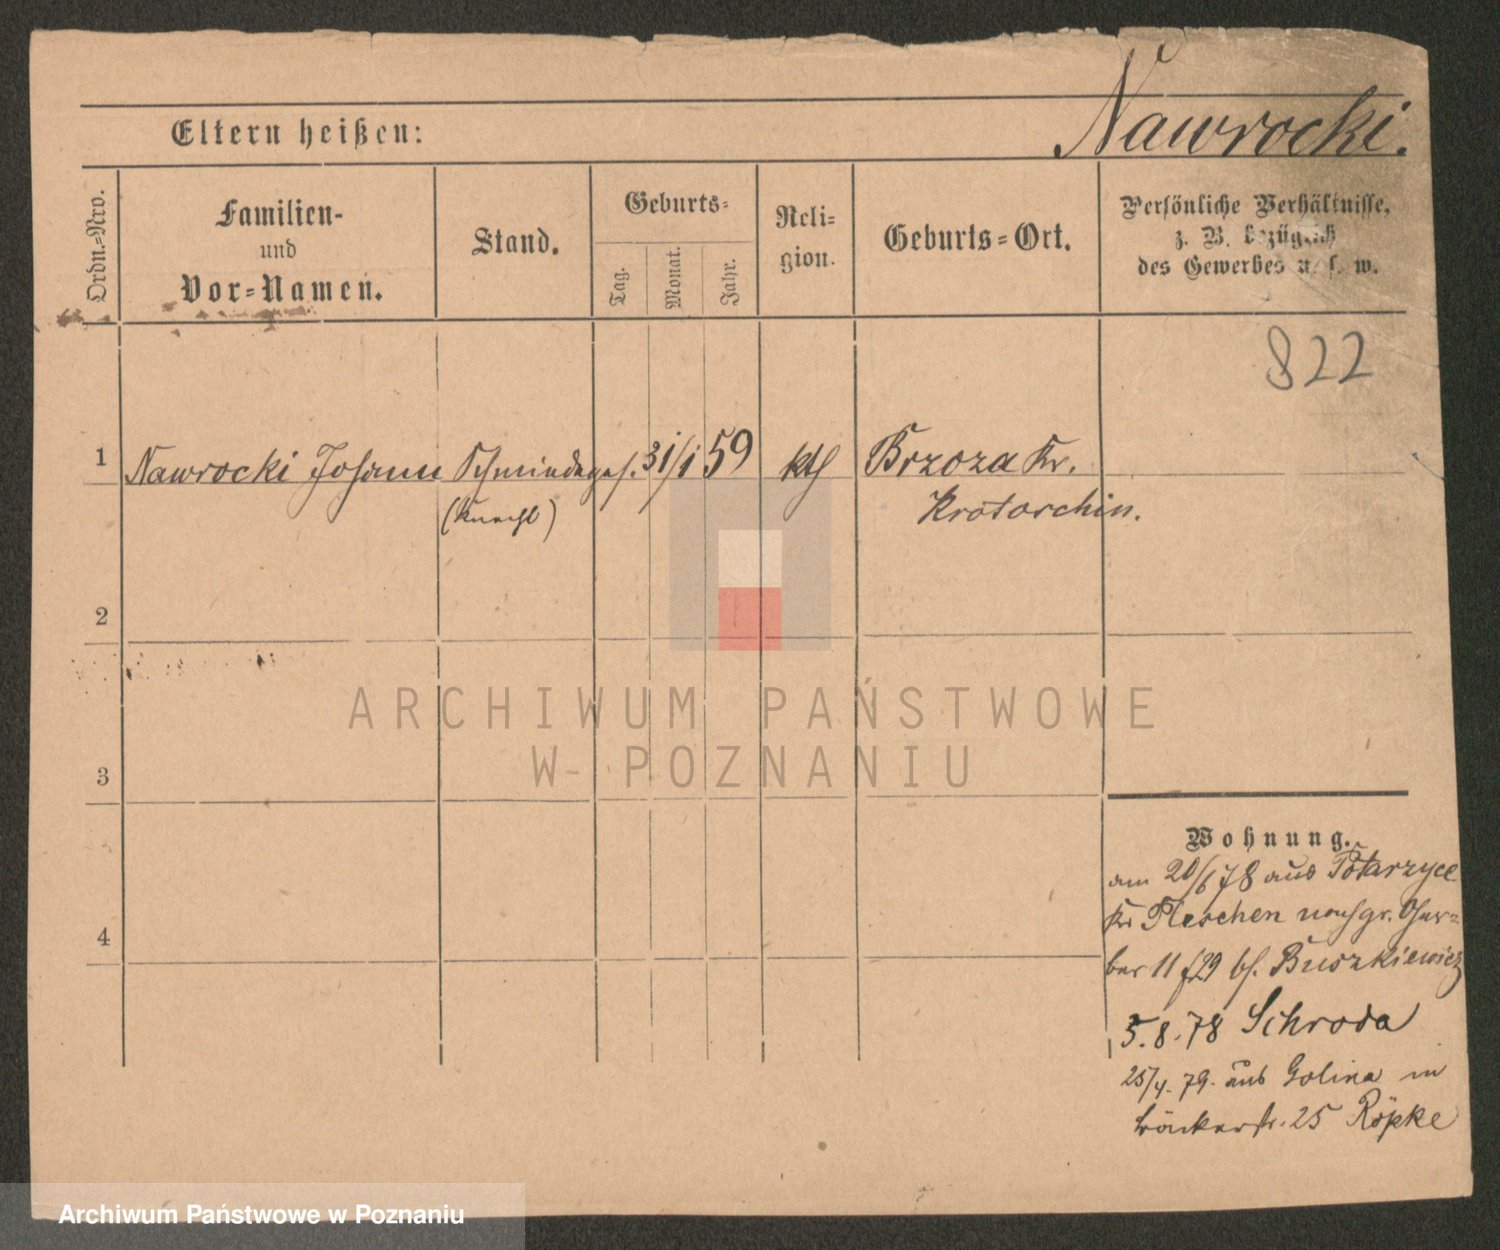 Nawrocki.
Eltern heißen:
Ordn.=Nro.
Familien-
und
Vor=Namen.
Stand.
Geburts=
Tag.
Monat.
Jahr.
Reli=
gion.
Geburts=Ort.
Persönliche Verhältnisse,
z. B. bezüglich
des Gewerbes u. s. w.
822
1 Nawrocki Johann Schmiedeges. 31/1 59 kth Brzoza Kr.
(Knecht) Krotoschin.
2
3
4
Wohnung.
am 20/6 78 aus Potarzyce
Kr. Pleschen nach gr. Ger=
ber 11 bei Buszkiewicz
5.8.78 Schroda
25/4. 79. aus Golina in
Bäckerstr. 25 Röpke
ARCHIWUM PAŃSTWOWE
W POZNANIU
Archiwum Państwowe w Poznaniu